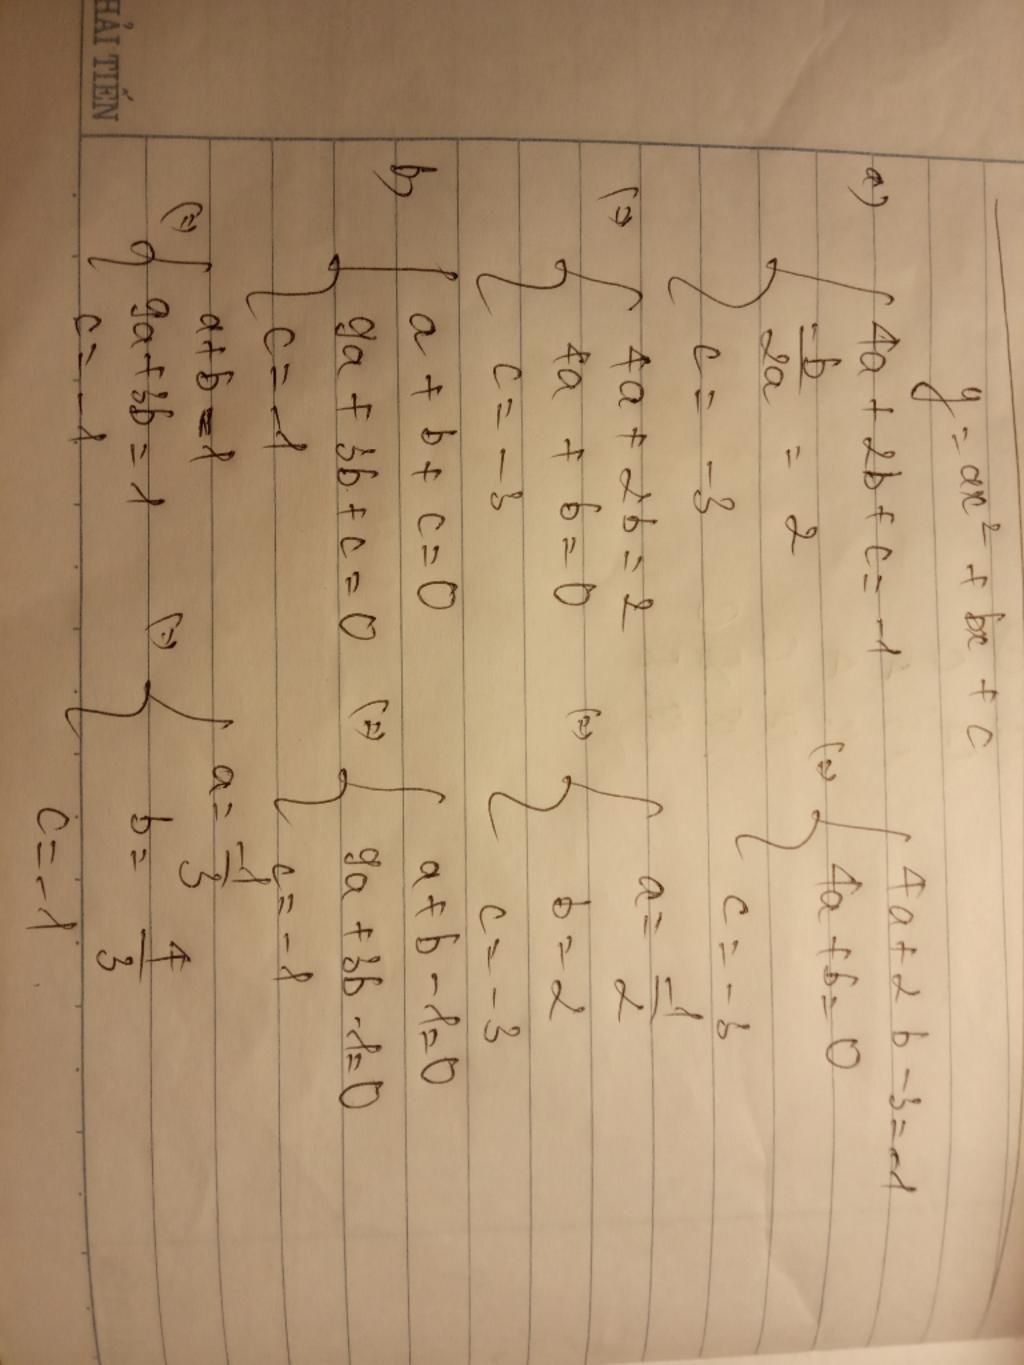 HẢI TIẾN
y = ax² + bx + c
a) { 4a + 2b + c = -1
-b/2a = 2
c = -3
(=) { 4a + 2b - 3 = -1
4a + b = 0
c = -3
(=) { 4a + 2b = 2
4a + b = 0
c = -3
(=) { a = -1/2
b = 2
c = -3
b) { a + b + c = 0
9a + 3b + c = 0
c = -1
(=) { a + b - 1 = 0
9a + 3b - 1 = 0
c = -1
(=) { a + b = 1
9a + 3b = 1
c = -1
(=) { a = -1/3
b = 4/3
c = -1